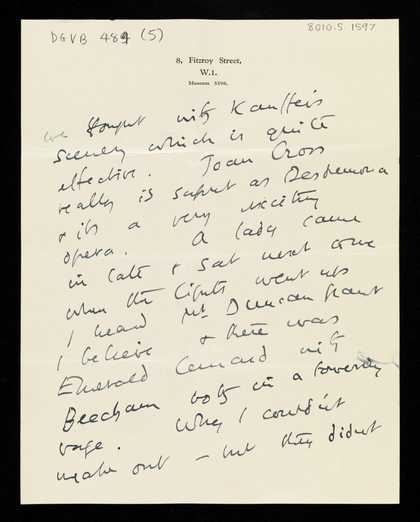 DGVB 484 (5)
8010.5.1597
8, Fitzroy Street,
W.1.
Museum
we thought with Kauffer's
scenery which is quite
effective. Joan Cross
really is superb as Desdemona
& its a very exciting
opera. A lady came
in late & sat next one
when the lights went up
I heard Mr Duncan Grant
I believe & there was
Emerald Cunard with
Beecham both in a towering
rage. Why I couldn't
make out – but they didn't